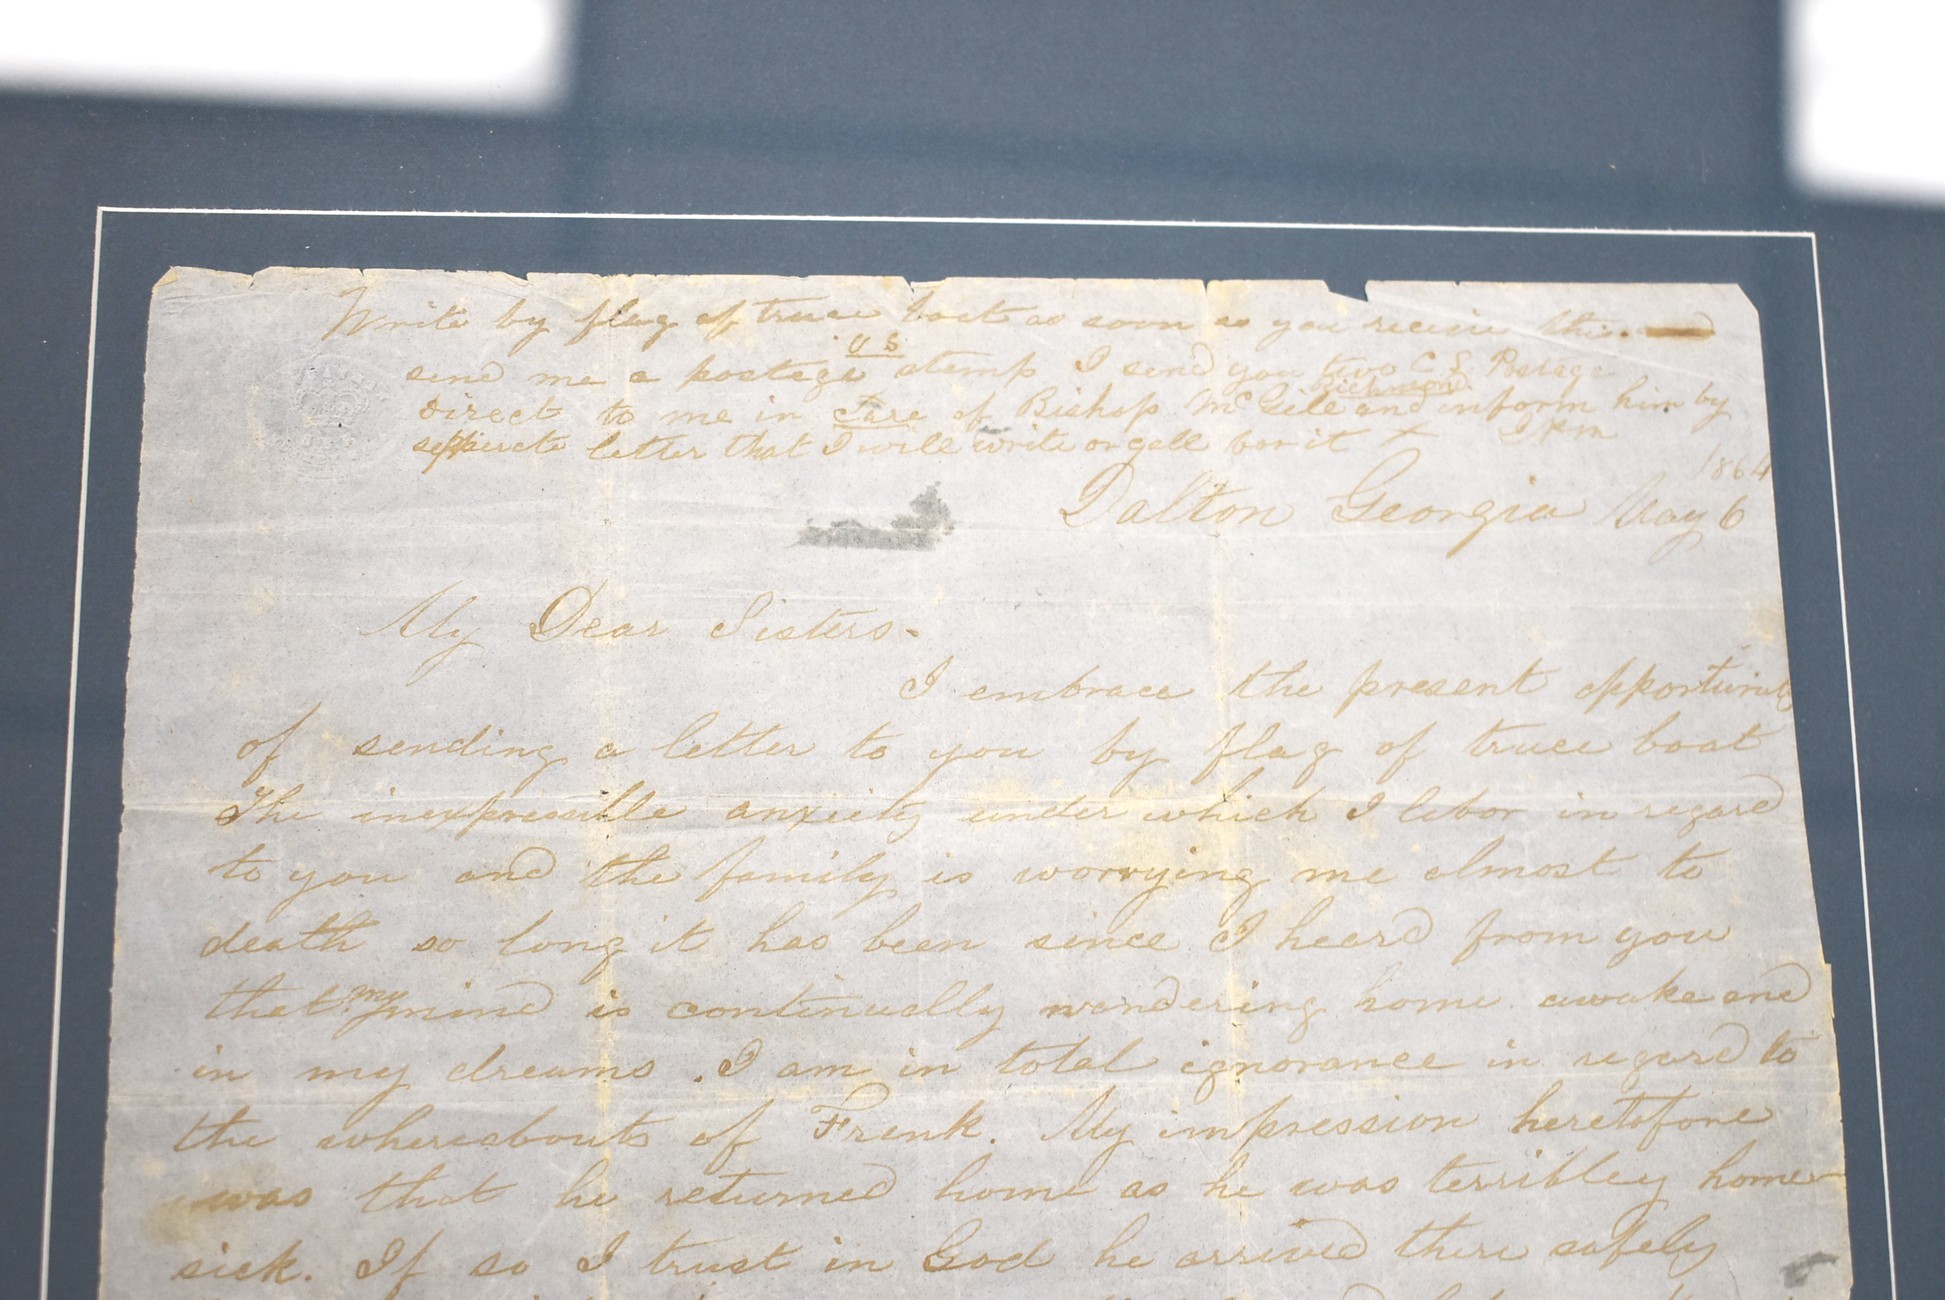 Write by flag of truce boat as soon as you receive this.
send me a postage U S stamp I send you two C S Postage
Direct to me in Care of Bishop McGill Richmond and inform him by
letter that I will write or call for it X
1864
Dalton Georgia May 6
My Dear Sisters-
I embrace the present opportunity
of sending a letter to you by flag of truce boat
The inexpressible anxiety under which I labor in regard
to you and the family is worrying me almost to
death so long it has been since I heard from you
that my mind is continually wandering home awake and
in my dreams. I am in total ignorance in regard to
the whereabouts of Frank. My impression heretofore
was that he returned home as he was terribley home
sick. If so I trust in God he arrived there safely